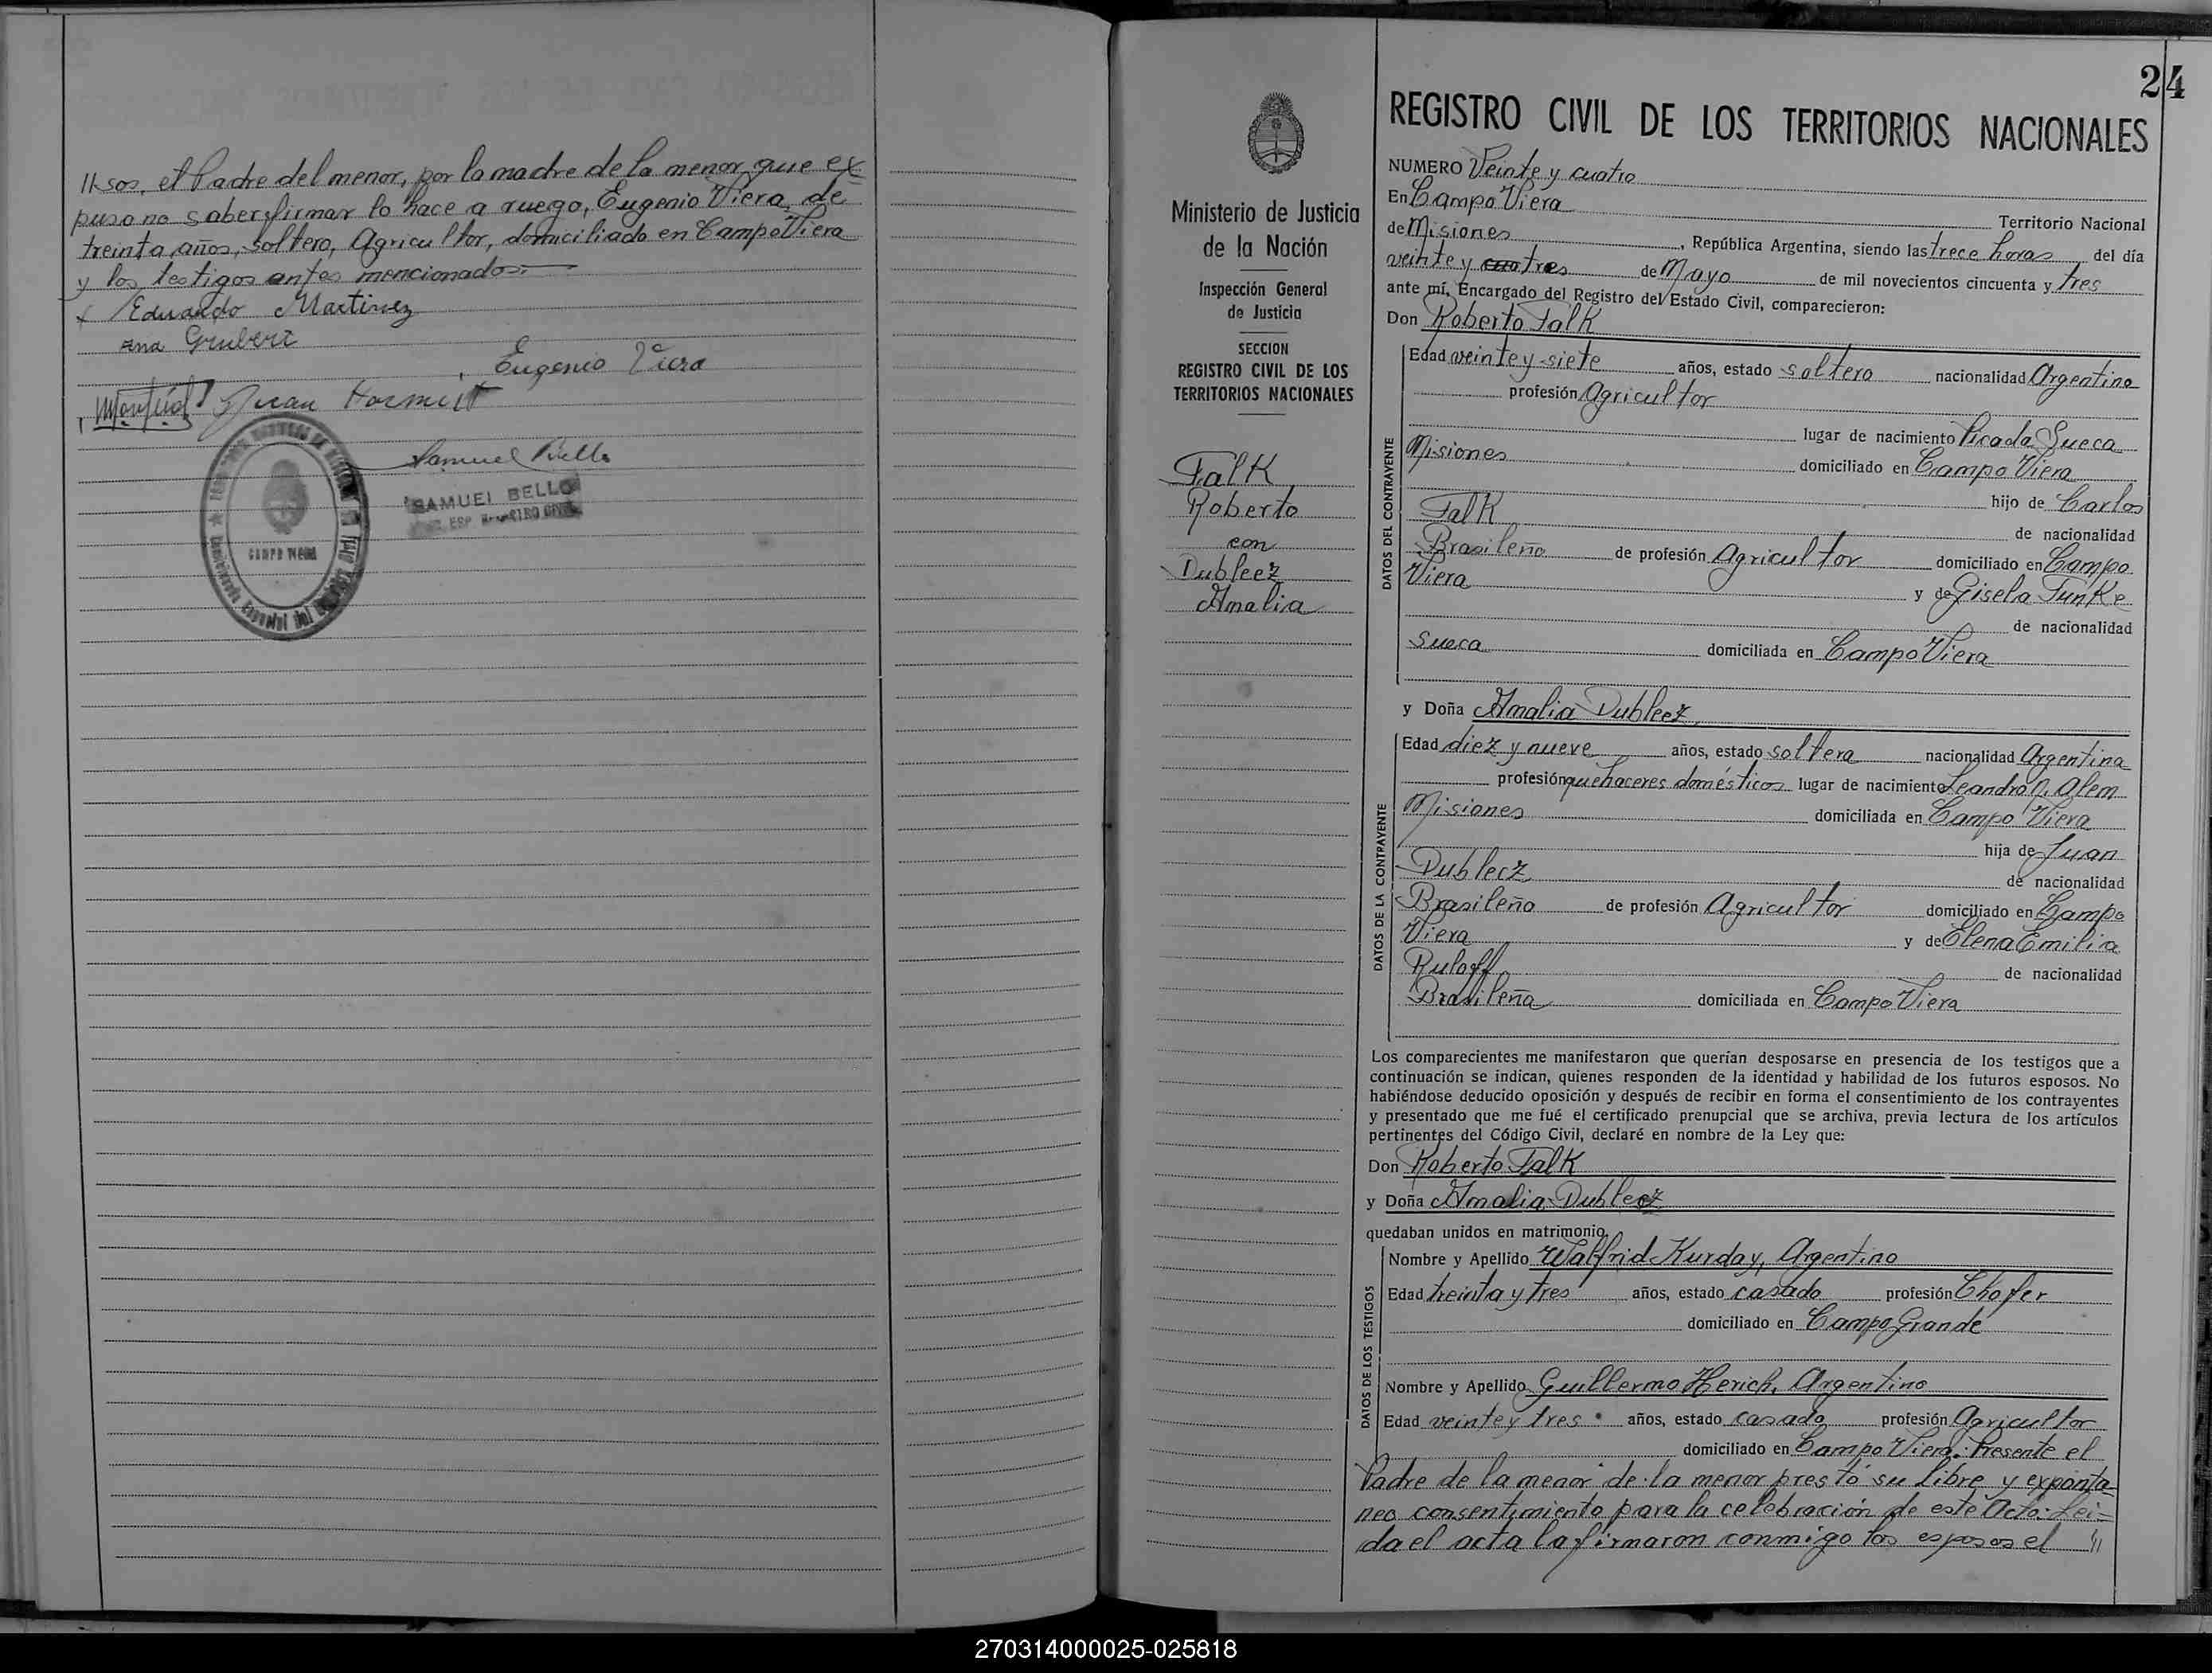 sos, el Padre del menor, por la madre de la menor que ex
puso no saber firmar lo hace a ruego, Eugenio Viera, de
treinta años, soltero, Agricultor, domiciliado en Campo Viera
y los testigos antes mencionados.
Eduardo Martinez
Ana Grubert
Eugenio Viera
Juan
Samuel Bello
SAMUEL BELLO
CAMPO VIERA
24
Ministerio de Justicia
de la Nación
Inspección General
de Justicia
SECCION
REGISTRO CIVIL DE LOS
TERRITORIOS NACIONALES
Falk
Roberto
con
Dubleez
Amalia
REGISTRO CIVIL DE LOS TERRITORIOS NACIONALES
NUMERO Veinte y cuatro
En Campo Viera Territorio Nacional
de Misiones, República Argentina, siendo las trece horas del día
veinte y tres de Mayo de mil novecientos cincuenta y tres
ante mí, Encargado del Registro del Estado Civil, comparecieron:
Don Roberto Falk
DATOS DEL CONTRAYENTE
Edad veinte y siete años, estado soltero nacionalidad Argentino
profesión Agricultor
lugar de nacimiento Picada Sueca
Misiones domiciliado en Campo Viera
hijo de Carlos
Falk de nacionalidad
Brasileño de profesión Agricultor domiciliado en Campo
Viera y de Gisela Funke
de nacionalidad
Sueca domiciliada en Campo Viera
y Doña Amalia Dubleez
DATOS DE LA CONTRAYENTE
Edad diez y nueve años, estado soltera nacionalidad Argentina
profesión quehaceres domésticos lugar de nacimiento Leandro N. Alem
Misiones domiciliada en Campo Viera
hija de Juan
Dubleez de nacionalidad
Brasileño de profesión Agricultor domiciliado en Campo
Viera y de Elena Emilia
Ruloff de nacionalidad
Brasileña domiciliada en Campo Viera
Los comparecientes me manifestaron que querían desposarse en presencia de los testigos que a
continuación se indican, quienes responden de la identidad y habilidad de los futuros esposos. No
habiéndose deducido oposición y después de recibir en forma el consentimiento de los contrayentes
y presentado que me fué el certificado prenupcial que se archiva, previa lectura de los artículos
pertinentes del Código Civil, declaré en nombre de la Ley que:
Don Roberto Falk
y Doña Amalia Dubleez
quedaban unidos en matrimonio.
DATOS DE LOS TESTIGOS
Nombre y Apellido Walfrid Kurday, Argentino
Edad treinta y tres años, estado casado profesión Chofer
domiciliado en Campo Grande
Nombre y Apellido Guillermo Herich, Argentino
Edad veinte y tres años, estado casado profesión Agricultor
domiciliado en Campo Viera. Presente el
Padre de la menor de la menor prestó su libre y exponta-
neo consentimiento para la celebración de este Acto: Lei=
da el acta la firmaron conmigo los esposos el "
270314000025-025818